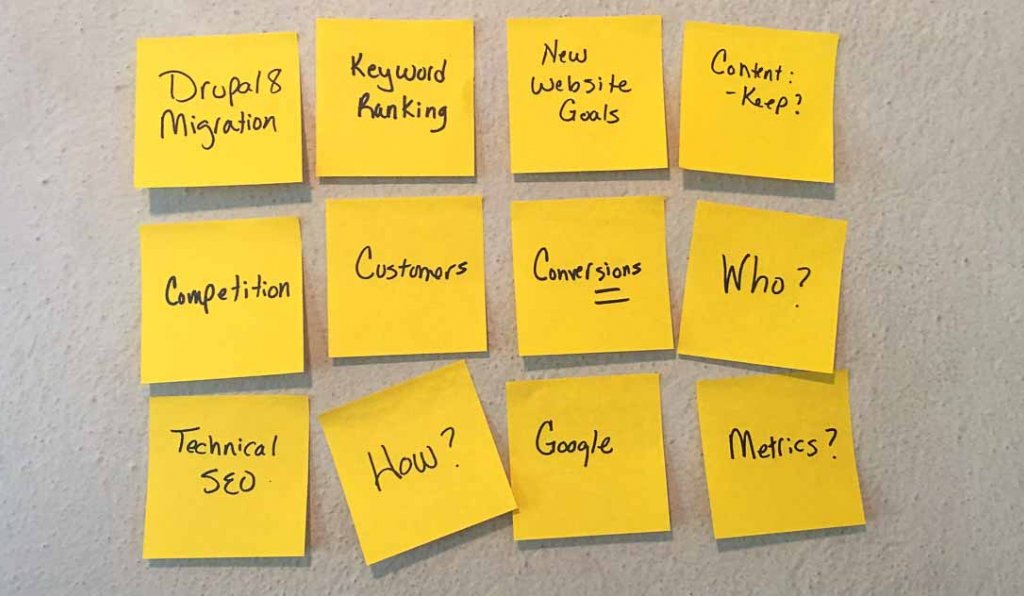 Drupal 8
Migration
Keyword
Ranking
New
Website
Goals
Content:
- Keep?
Competition
Customers
Conversions
Who?
Technical
SEO
How?
Google
Metrics?